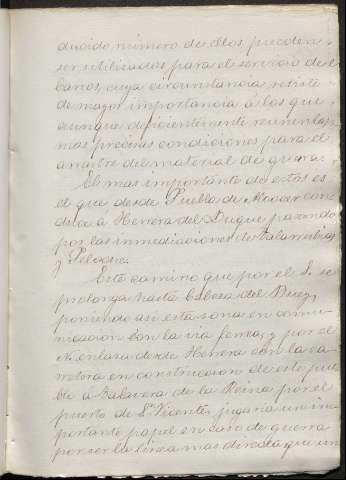 ducido número de ellos, pueden
ser utilizados para el servicio de
carros, cuya circunstancia reviste
de mayor importancia á los que
aunque deficientemente reunen las
mas precisas condiciones para el
arrastre del material de guerra.
El mas importante de estos es
el que desde Puebla de Alcocer con
duce á Herrera del Duque pasando
por las inmediaciones de Talarrubias
y Peloche.
Este camino que por el S. se
prolonga hasta Cabeza del Buey,
poniendo asi esta zona en comu-
nicacion con la via ferrea, y por el
N. enlaza desde Herrera con la ca-
rretera en construccion de este pue
blo á Talavera de la Reina por el
puerto de Sn. Vicente, jugaria un im-
portante papel en caso de guerra
por ser la linea mas directa que un